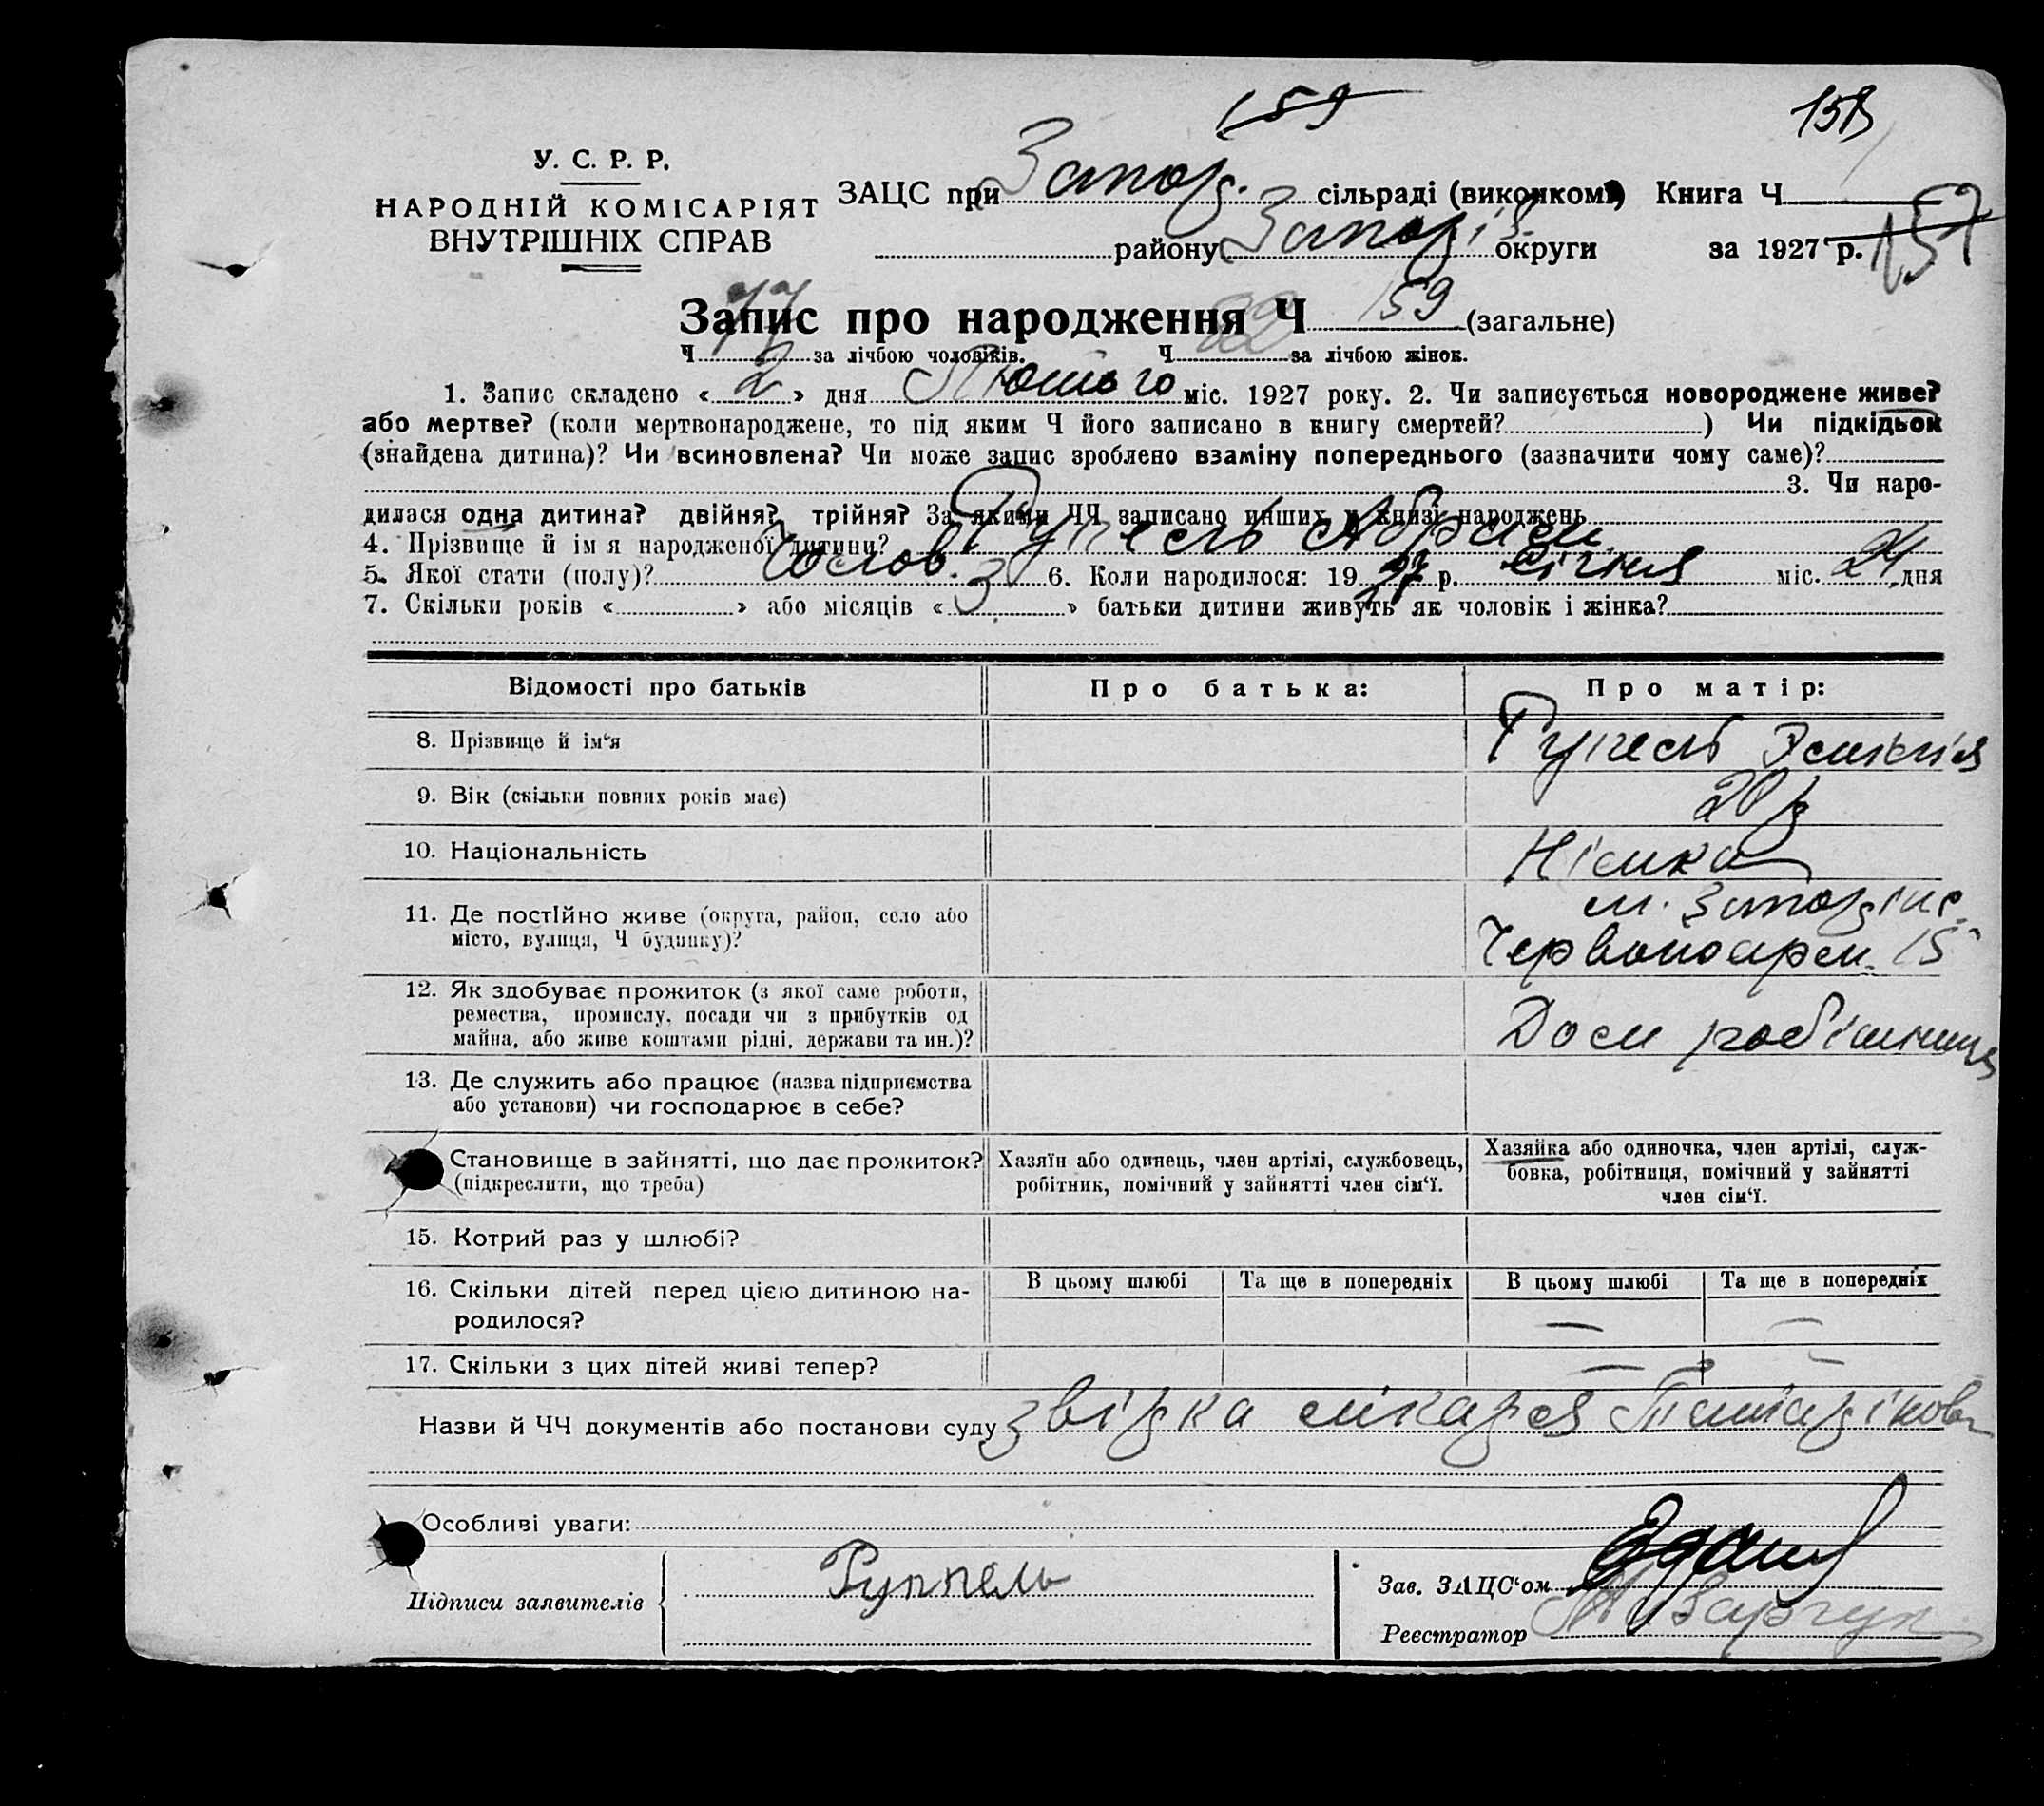 159
158
У. С. Р. Р.
НАРОДНІЙ КОМІСАРІЯТ
ВНУТРІШНІХ СПРАВ
ЗАЦС при Запор. сільраді (виконкомі) Книга Ч
району Запоріз. округи за 1927 р. 157
Запис про народження Ч 159 (загальне)
Ч 77 за лічбою чоловіків. Ч 82 за лічбою жінок.
1. Запис складено « 2 » дня Лютого міс. 1927 року. 2. Чи записується новороджене живе?
або мертве? (коли мертвонароджене, то під яким Ч його записано в книгу смертей?) Чи підкідьок
(знайдена дитина)? Чи всиновлена? Чи може запис зроблено взаміну попереднього (зазначити чому саме)?
3. Чи наро-
дилася одна дитина? двійня? трійня? За якими ЧЧ записано инших у книзі народжень
4. Прізвище й ім я народженої дитини? Рупель Абрам
5. Якої стати (полу)? Чолов. 6. Коли народилося: 19 27 р. Січня міс. 24 дня
7. Скільки років « » або місяців « 3 » батьки дитини живуть як чоловік і жінка?
Відомості про батьків Про батька: Про матір:
8. Прізвище й ім‘я Рупель
9. Вік (скільки повних років має) 20 р
10. Національність Німка
11. Де постійно живе (округа, район, село або
місто, вулиця, Ч будинку)? м. Запоріж.
Червоноарм. 15
12. Як здобуває прожиток (з якої саме роботи,
ремества, промислу, посади чи з прибутків од
майна, або живе коштами рідні, держави та ин.)? Дом робітниця
13. Де служить або працює (назва підприємства
або установи) чи господарює в себе?
Становище в зайнятті, що дає прожиток?
(підкреслити, що треба)
Хазяїн або одинець, член артілі, службовець,
робітник, помічний у зайнятті член сім‘ї.
Хазяйка або одиночка, член артілі, служ-
бовка, робітниця, помічний у зайнятті
член сім‘ї.
15. Котрий раз у шлюбі?
16. Скільки дітей перед цією дитиною на-
родилося?
В цьому шлюбі Та ще в попередніх В цьому шлюбі Та ще в попередніх
— —
17. Скільки з цих дітей живі тепер? — —
Назви й ЧЧ документів або постанови суду звідка лікаря
Особливі уваги:
Підписи заявителів Руппель
Зав. ЗАЦС‘ом
Реєстратор